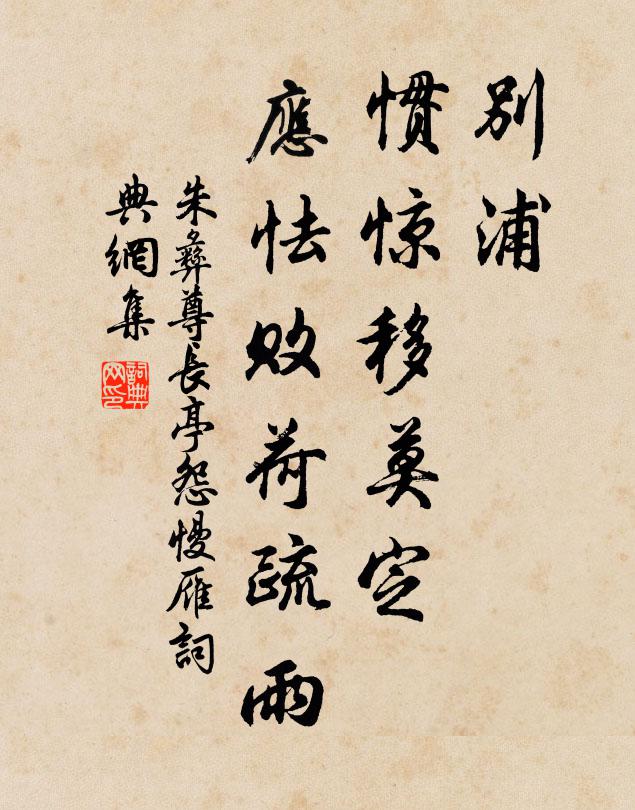 别浦
惯惊移莫定
應怯败荷疏雨
朱彝尊長亭怨慢雁詞
典網集
詞典
网印